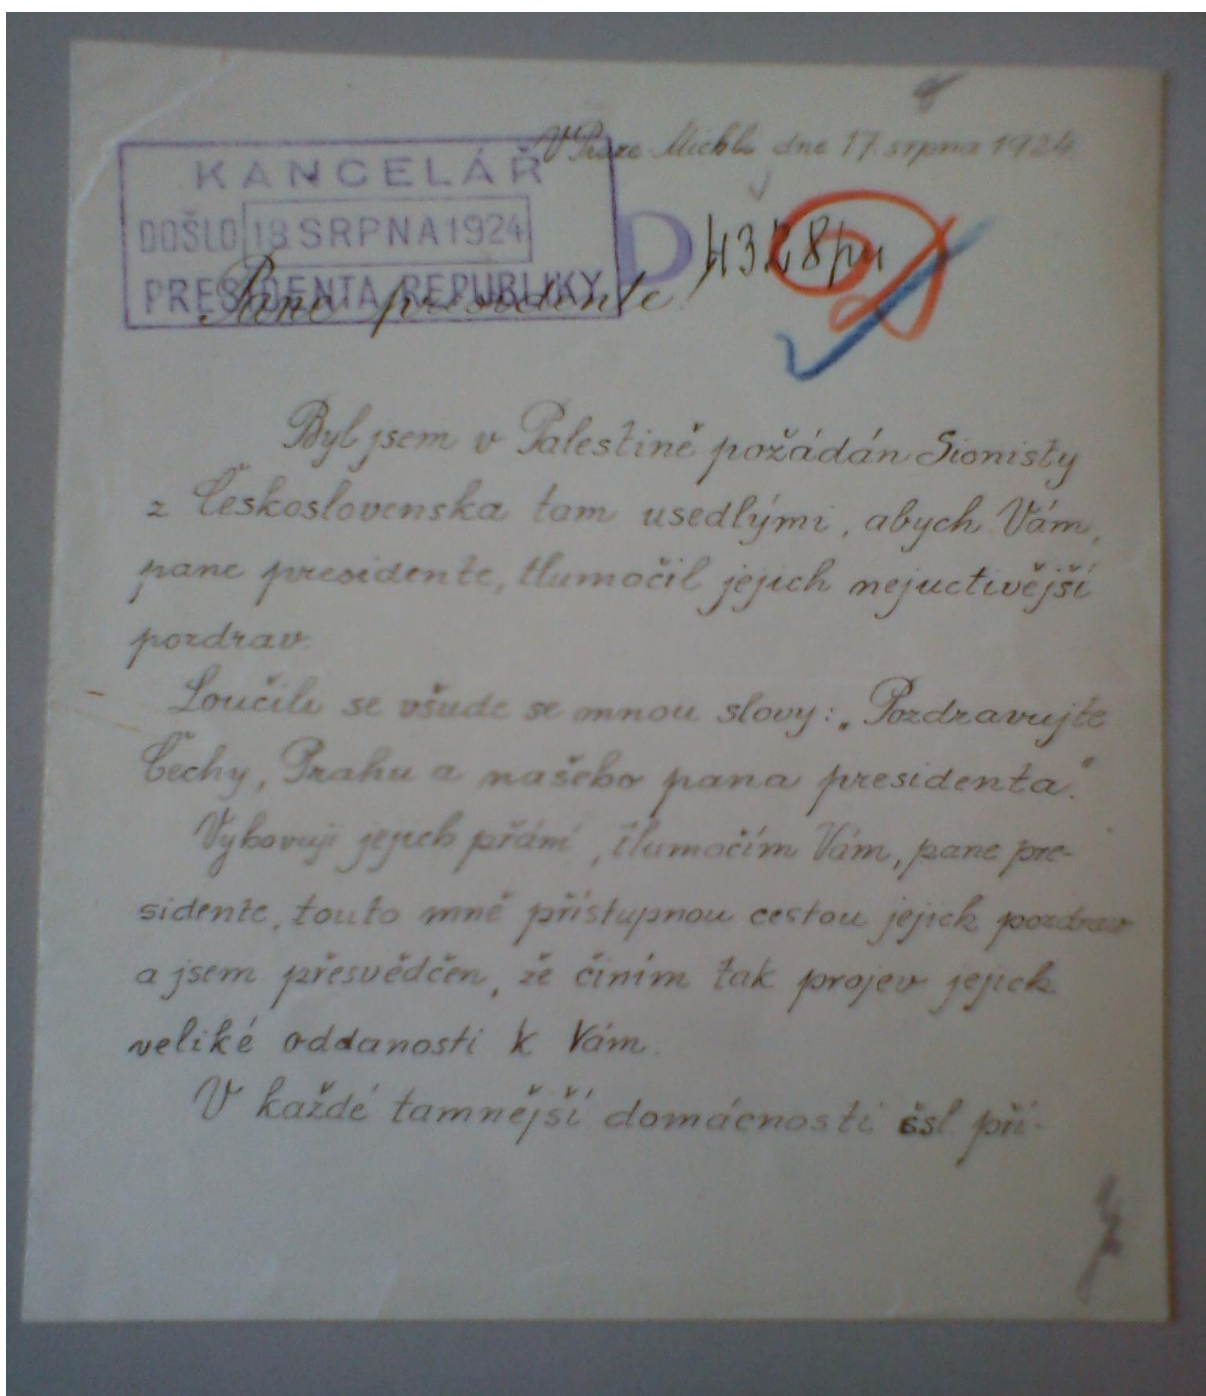 V Praze Michli dne 17. srpna 1924
KANCELÁŘ
DOŠLO 18 SRPNA 1924
PRESIDENTA REPUBLIKY
D 4328
Pane presidente!
Byl jsem v Palestině požádán Sionisty
z Československa tam usedlými, abych Vám,
pane presidente, tlumočil jejich nejuctivější
pozdrav.
Loučili se všude se mnou slovy: „Pozdravujte
Čechy, Prahu a našeho pana presidenta."
Vyhovuji jejich přání, tlumočím Vám, pane pre-
sidente, touto mně přístupnou cestou jejich pozdrav
a jsem přesvědčen, že činím tak projev jejich
veliké oddanosti k Vám.
V každé tamnější domácnosti čsl. pří-